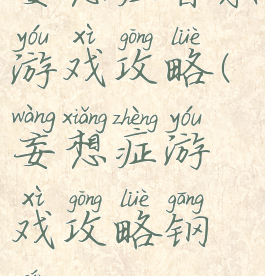 yóu xì gōng lüè
游戏攻略(
wàng xiǎng zhèng yóu
妄想症游
xì gōng lüè gāng
戏攻略钢